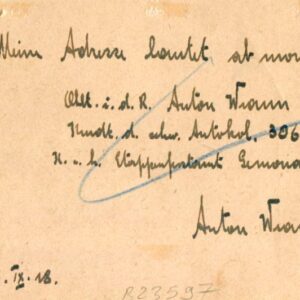 Meine Adresse lautet ab mor
Oblt. i. d. R. Anton Wiam
Kmdt. d. schw. Autokol. 306
K. u. k. Etappenpostamt Gemona
Anton Wia
. IX. 18.
R23597